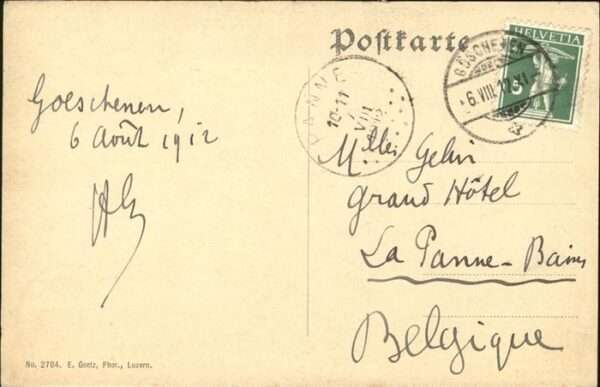 Postkarte
HELVETIA
5
GÖSCHENEN
6.VIII.12.XI
PANNE
10-11
VIII
Goeschenen,
6 Août 1912
Mlles Gelin
Grand Hôtel
La Panne-Bains
Belgique
No. 2704. E. Goetz, Phot., Luzern.